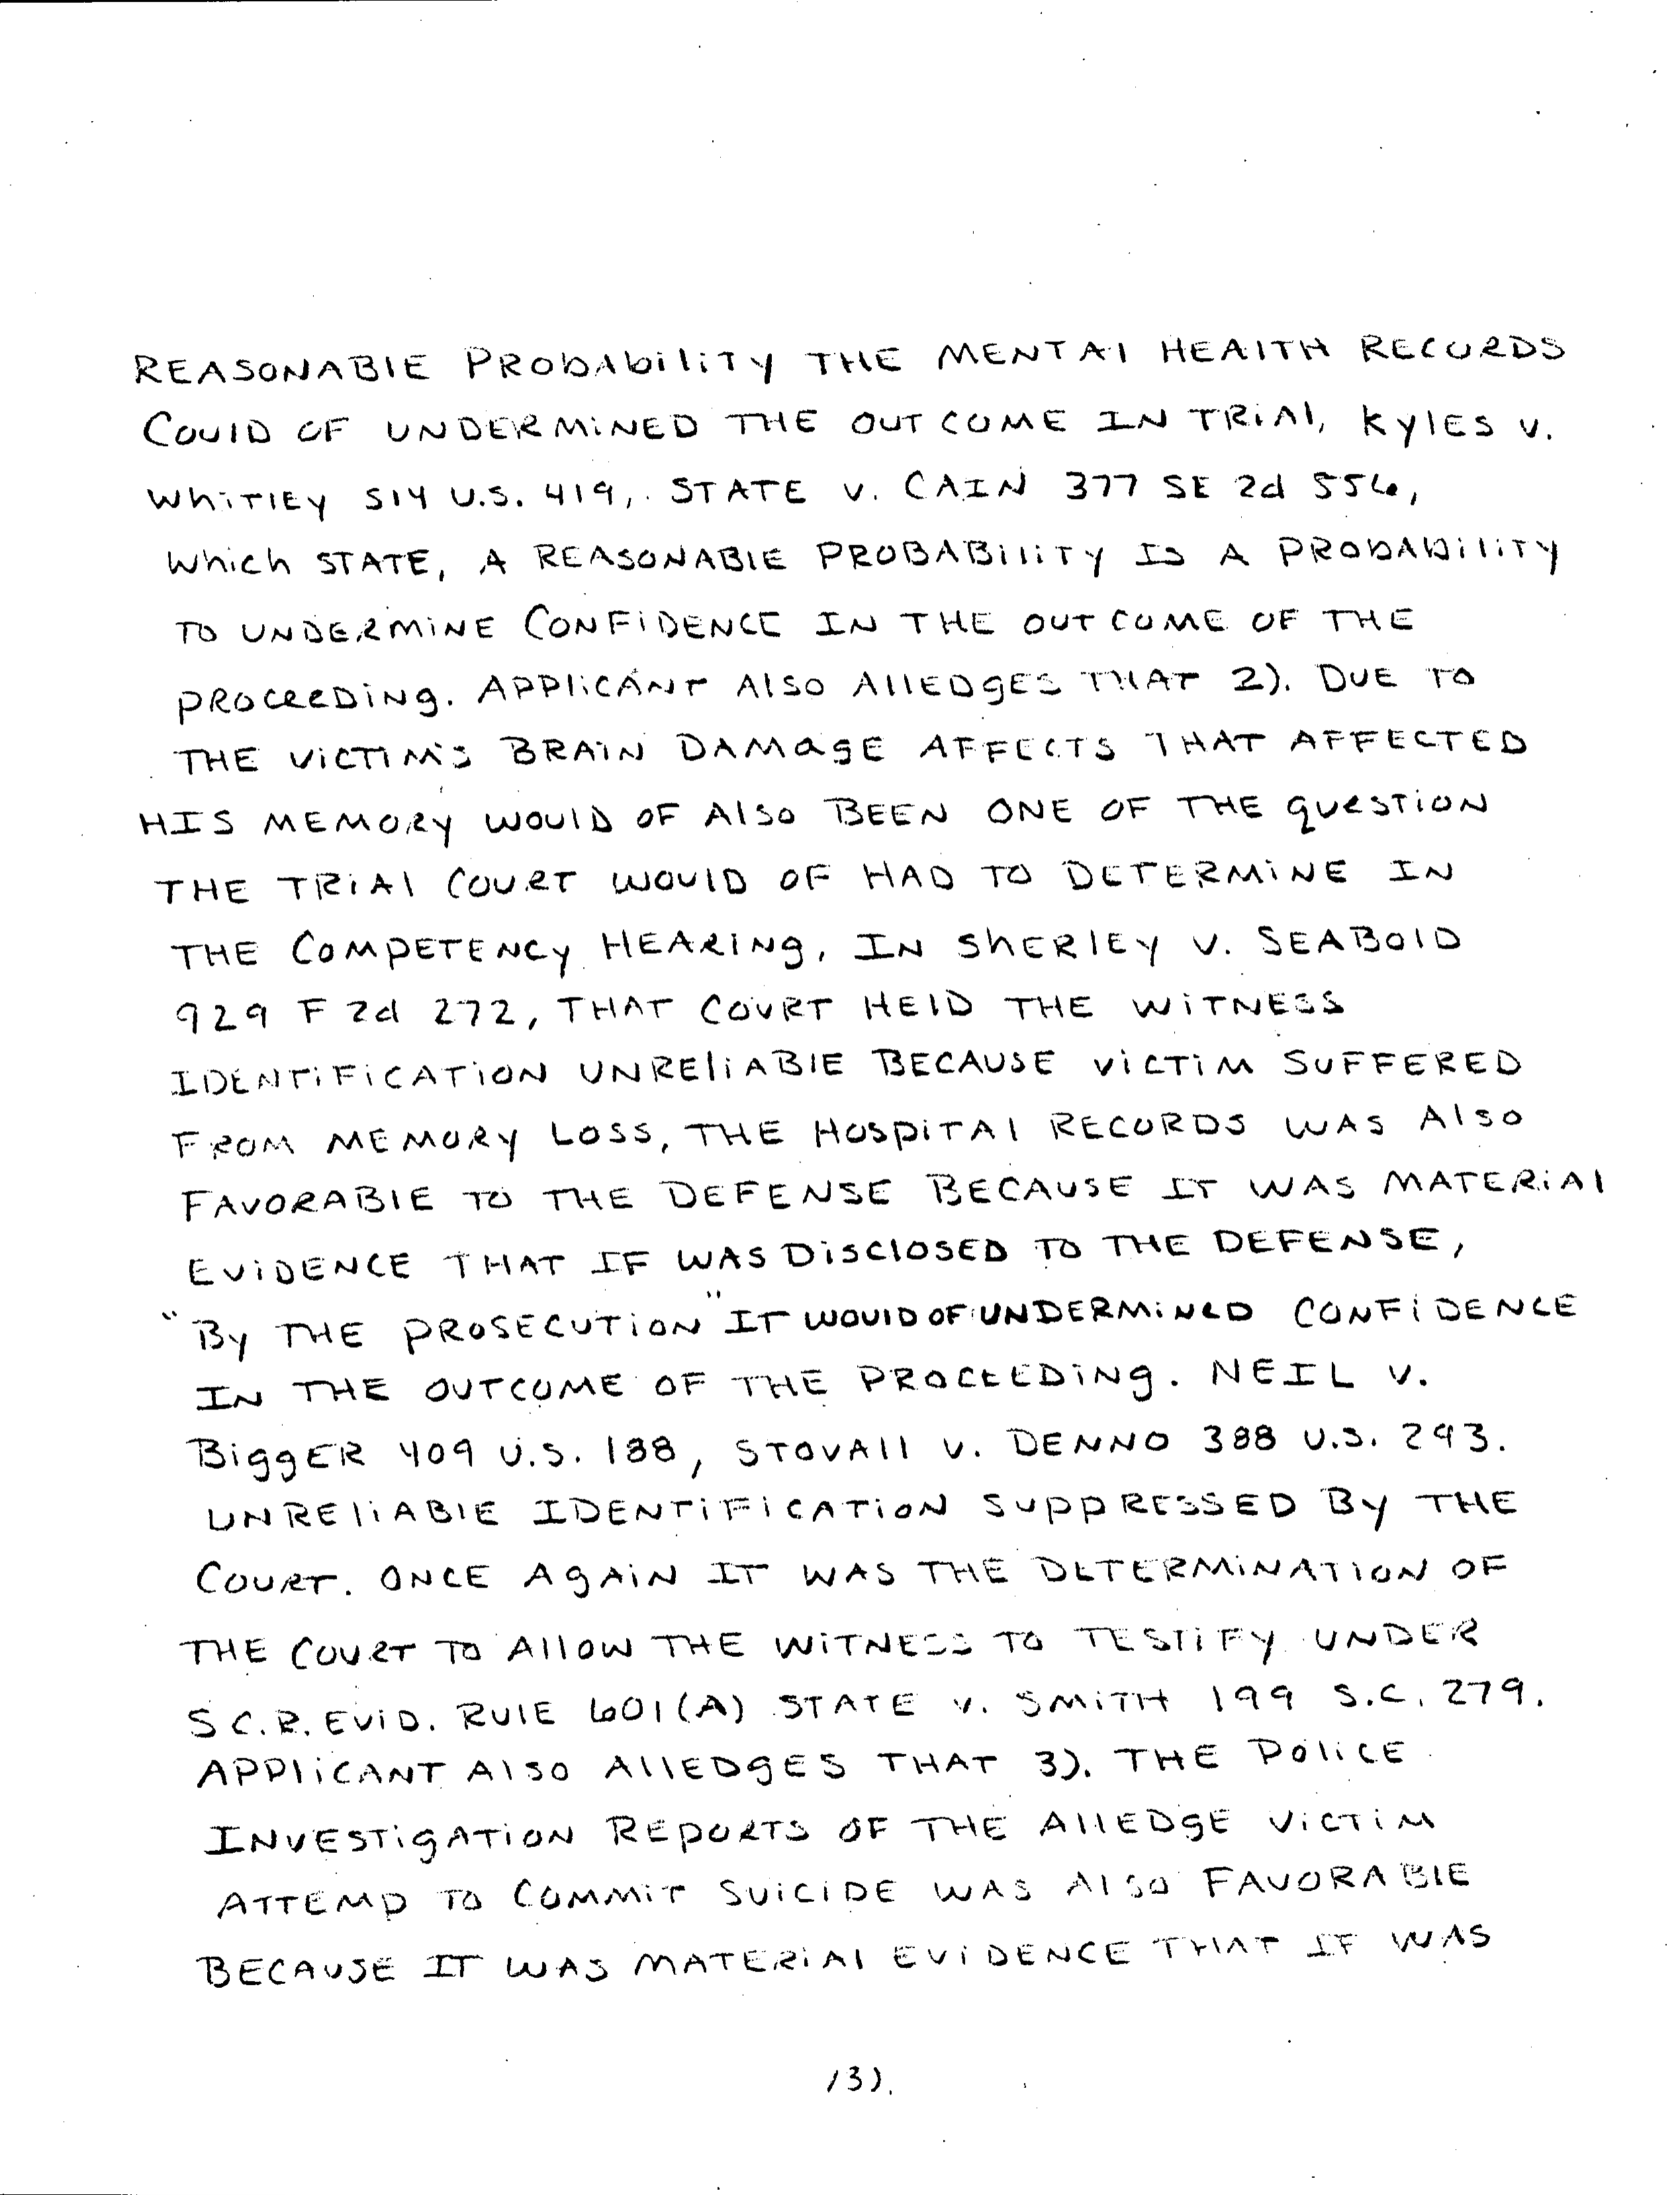 REASONABLE PROBABILITY THE MENTAL HEALTH RECORDS
COULD OF UNDERMINED THE OUTCOME IN TRIAL, KYLES V.
WHITLEY 514 U.S. 419, STATE V. CAIN 377 SE 2d 556,
Which STATE, A REASONABLE PROBABILITY IS A PROBABILITY
TO UNDERMINE CONFIDENCE IN THE OUTCOME OF THE
PROCEEDING. APPLICANT ALSO ALLEDGES THAT 2). DUE TO
THE VICTIM'S BRAIN DAMAGE AFFECTS THAT AFFECTED
HIS MEMORY WOULD OF ALSO BEEN ONE OF THE QUESTION
THE TRIAL COURT WOULD OF HAD TO DETERMINE IN
THE COMPETENCY HEARING, IN SHERLEY V. SEABOLD
929 F 2d 272, THAT COURT HELD THE WITNESS
IDENTIFICATION UNRELIABLE BECAUSE VICTIM SUFFERED
FROM MEMORY LOSS, THE HOSPITAL RECORDS WAS ALSO
FAVORABLE TO THE DEFENSE BECAUSE IT WAS MATERIAL
EVIDENCE THAT IF WAS DISCLOSED TO THE DEFENSE,
"BY THE PROSECUTION" IT WOULD OF UNDERMINED CONFIDENCE
IN THE OUTCOME OF THE PROCEEDING. NEIL V.
BIGGER 409 U.S. 188, STOVALL V. DENNO 388 U.S. 293.
UNRELIABLE IDENTIFICATION SUPPRESSED BY THE
COURT. ONCE AGAIN IT WAS THE DETERMINATION OF
THE COURT TO ALLOW THE WITNESS TO TESTIFY UNDER
S C.R. EVID. RULE 601(A) STATE V. SMITH 199 S.C. 279.
APPLICANT ALSO ALLEDGES THAT 3). THE POLICE
INVESTIGATION REPORTS OF THE ALLEDGE VICTIM
ATTEMP TO COMMIT SUICIDE WAS ALSO FAVORABLE
BECAUSE IT WAS MATERIAL EVIDENCE THAT IF WAS
13).